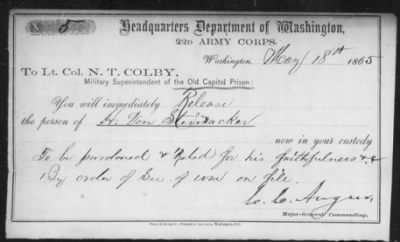 No 8
Headquarters Department of Washington,
22D ARMY CORPS.
Washington, May 18th 1865
To Lt. Col. N. T. COLBY,
Military Superintendent of the Old Capitol Prison:
You will immediately Release
the person of H. Von Steinacker
now in your custody
To be pardoned & for his faithfulness &c
By order of Sec. of War on file.
C. C. Augur,
Major-General Commanding.